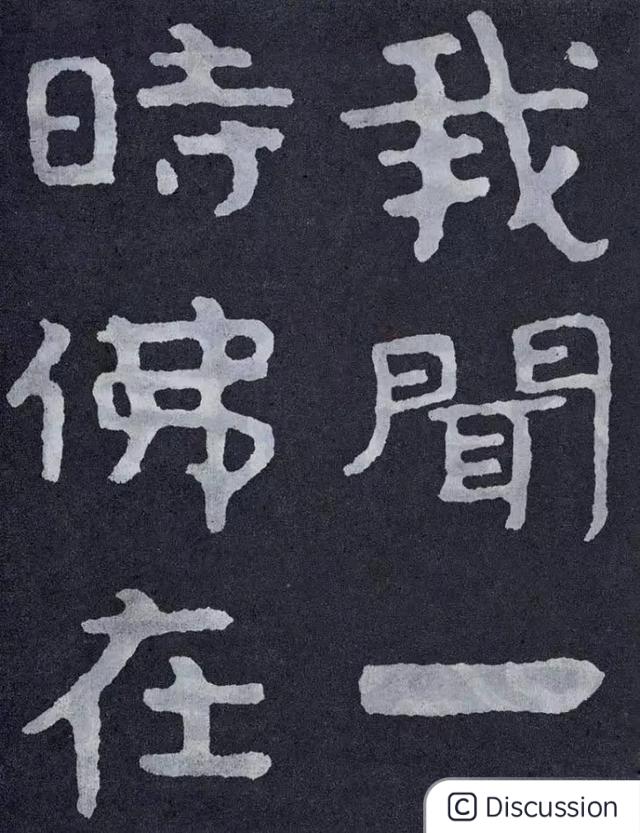 我聞一
時佛在
© Discussion